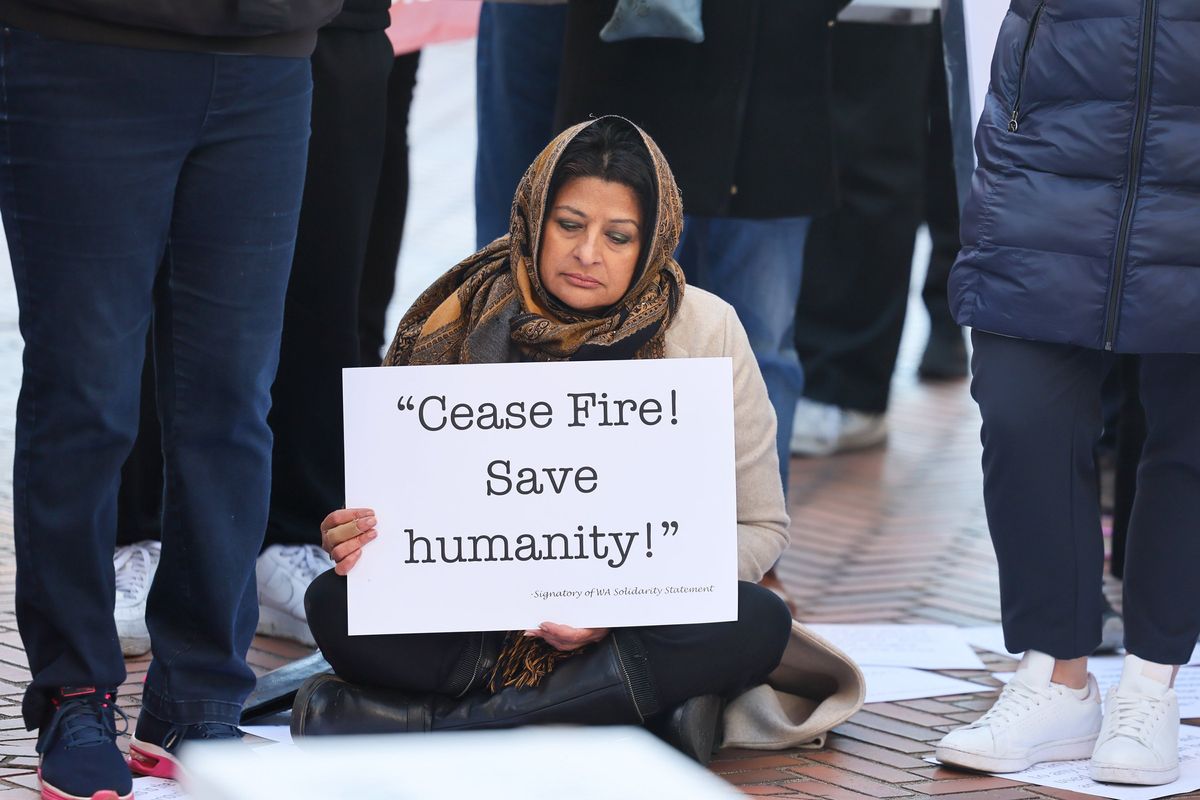 “Cease Fire!
Save
humanity!”
-Signatory of WA Solidarity Statement